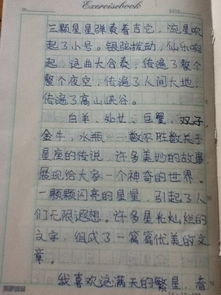 Exercisebook
三颗星星弹奏着吉它，流星吹
起了小号。银弦拨动，仙乐响
起，这曲大合奏，传遍了整个
整个夜空，传遍了人间大地，
传遍了高山峡谷。
白羊、仙女、巨蟹、双子
金牛、水瓶，一数不胜数关于
星座的传说，许多美妙的故事
展现给大家一个神奇的世界。
一颗颗闪亮的星星，引起了人
们无限遐想。许多星长灿烂的
文字，组成了一篇篇优美的文
章。
我喜欢这满天的繁星，